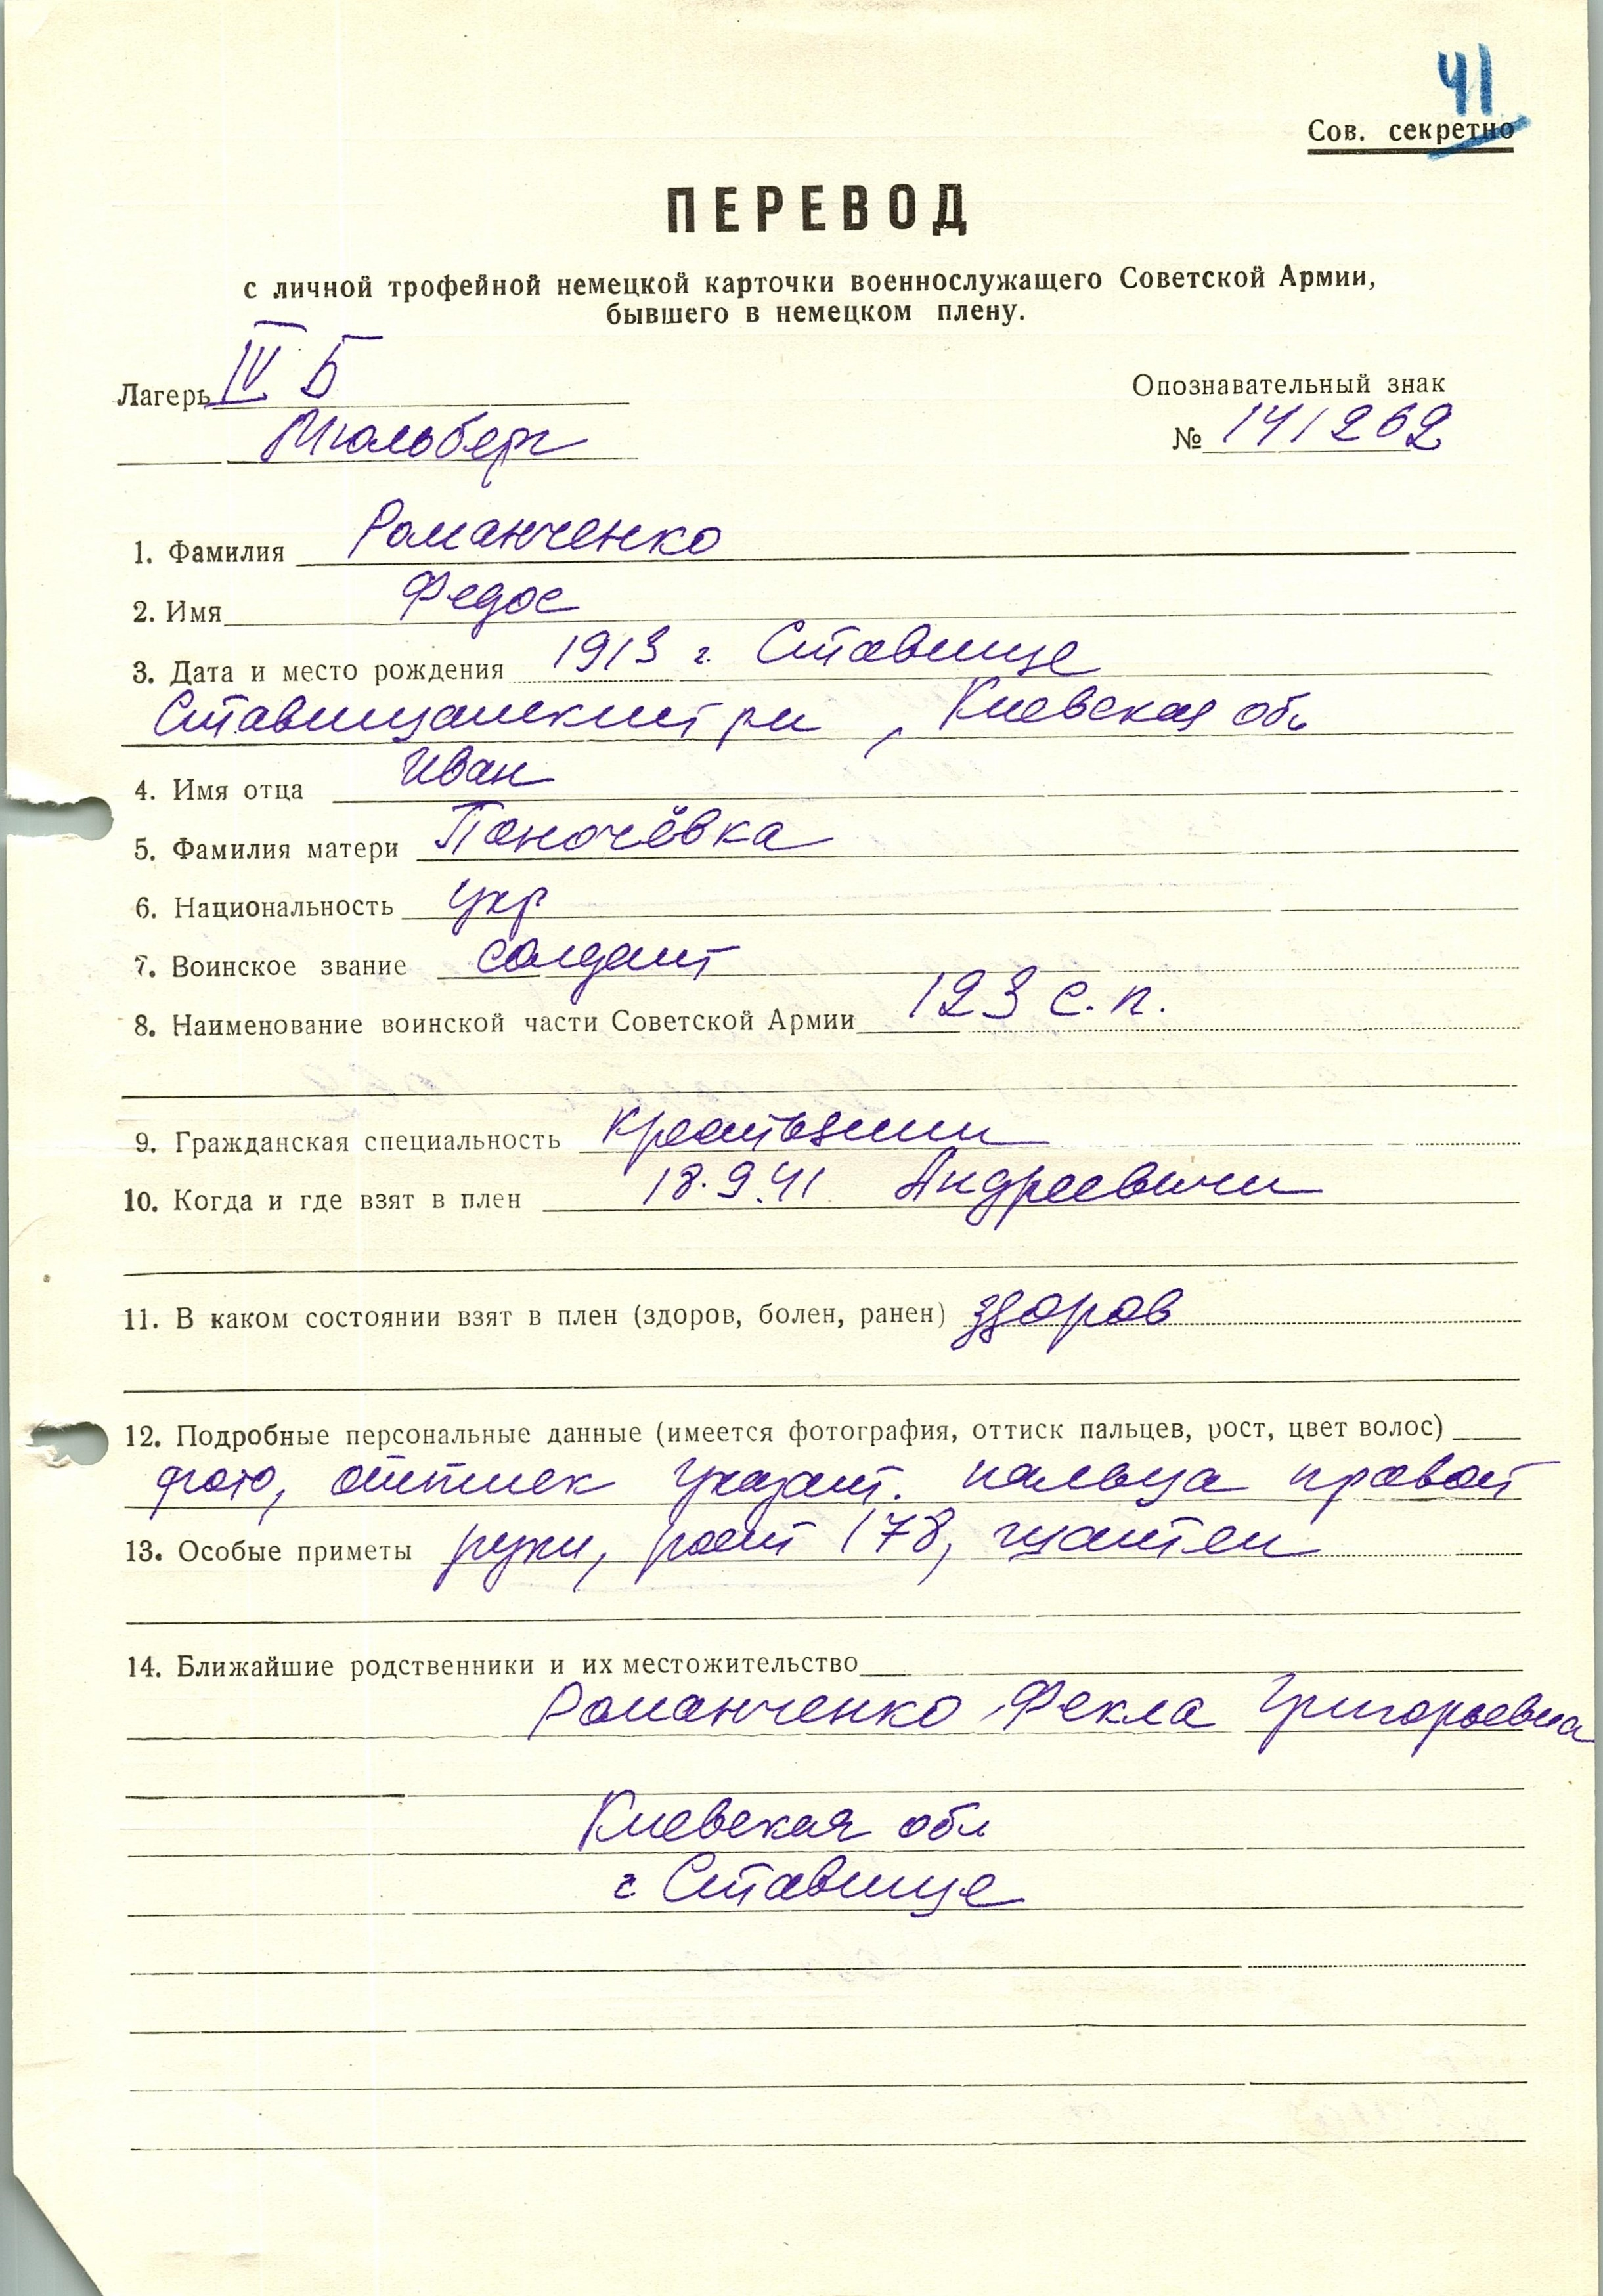 41
Сов. секретно
ПЕРЕВОД
с личной трофейной немецкой карточки военнослужащего Советской Армии,
бывшего в немецком плену.
Лагерь IV Б
Опознавательный знак
Мюльберг
№ 141262
1. Фамилия Романченко
2. Имя Федос
3. Дата и место рождения 1913 г. Ставище
Ставищанский рн, Киевская обл
4. Имя отца Иван
5. Фамилия матери Паночёвка
6. Национальность укр
7. Воинское звание солдат
8. Наименование воинской части Советской Армии 123 с.п.
9. Гражданская специальность крестьянин
10. Когда и где взят в плен 18.9.41 Андреевичи
11. В каком состоянии взят в плен (здоров, болен, ранен) здоров
12. Подробные персональные данные (имеется фотография, оттиск пальцев, рост, цвет волос)
фото, оттиск указат. пальца правой
13. Особые приметы руки, рост 178, шатен
14. Ближайшие родственники и их местожительство
Романченко Фекла Григорьевна
Киевская обл
г Ставище